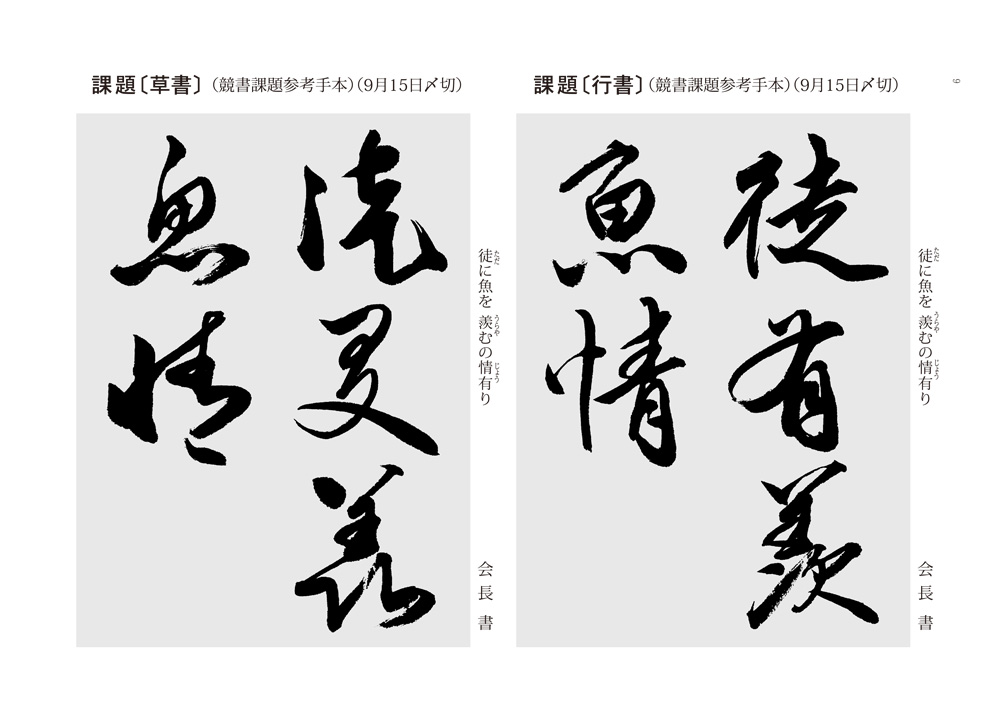 9
課題〔行書〕（競書課題参考手本）（9月15日〆切）
徒に魚を羨むの情有り
ただ
うらや
じょう
会長 書
徒有羨
魚情
課題〔草書〕（競書課題参考手本）（9月15日〆切）
徒に魚を羨むの情有り
ただ
うらや
じょう
会長 書
徒有羨
魚情